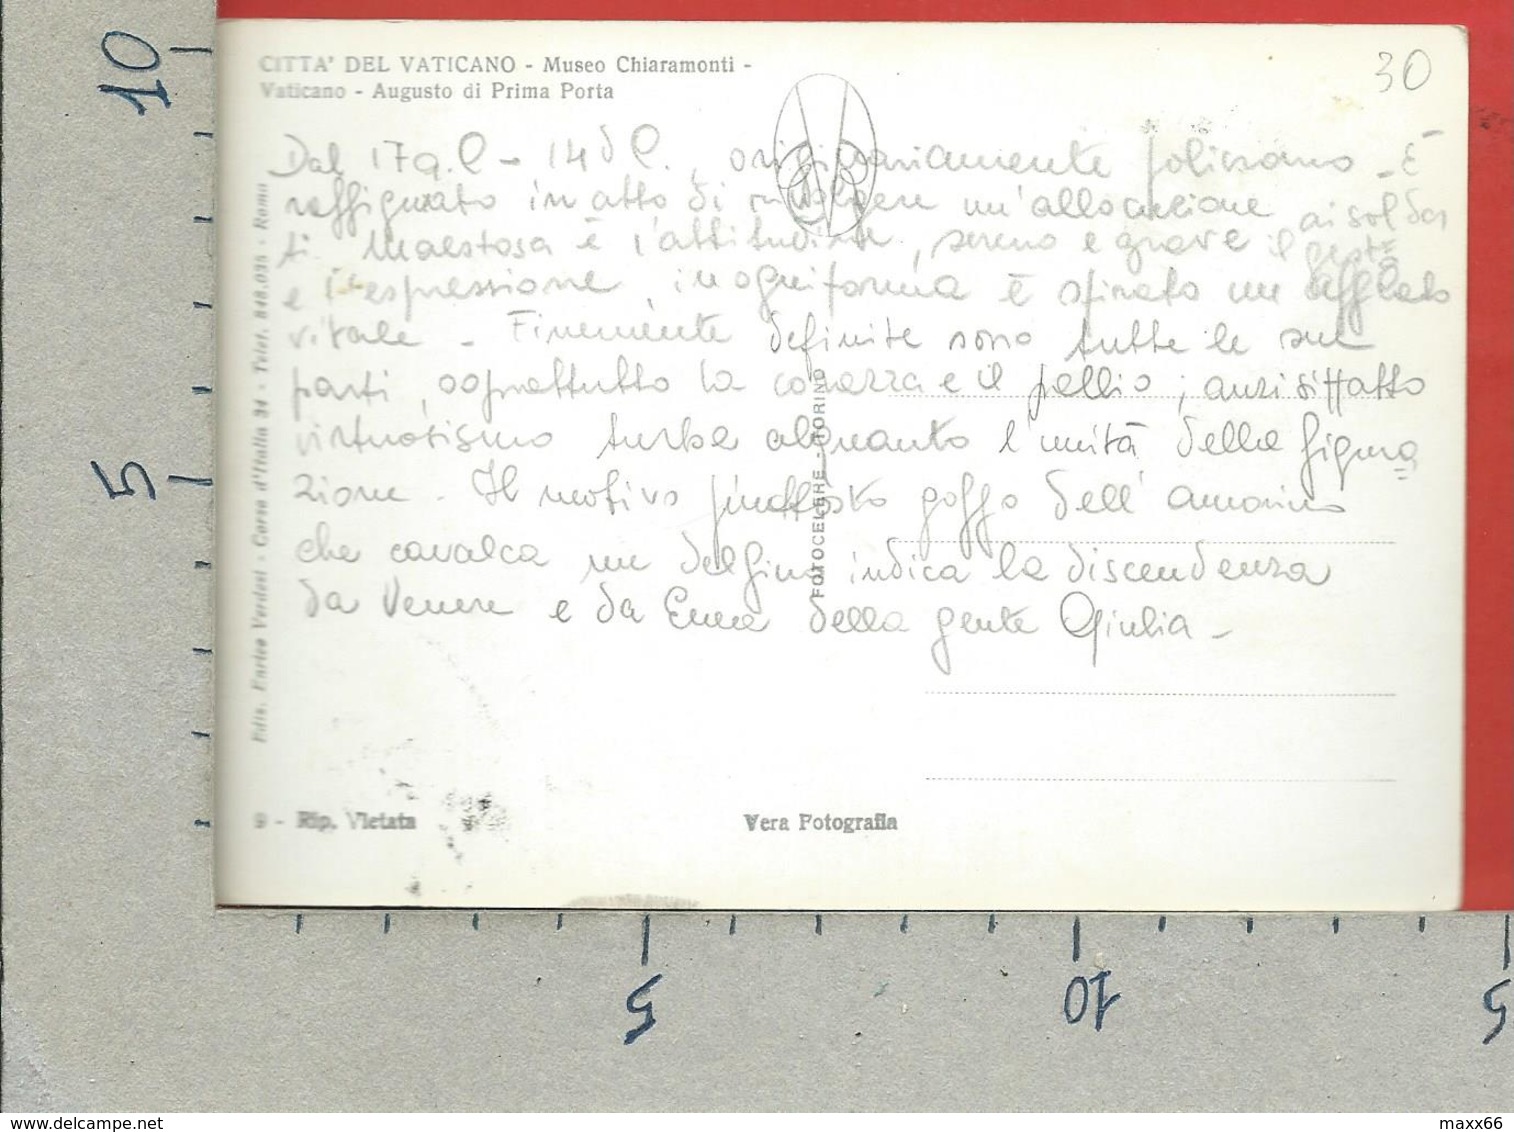 CITTA' DEL VATICANO - Museo Chiaramonti -
Vaticano - Augusto di Prima Porta
30
Dal 17 a.C - 14 d C., originariamente policromo - È
raffigurato in atto di rivolgere un'allocuzione ai soldati
ti. Maestosa è l'attitudine, sereno e grave il gesto
e l'espressione, in ogni forma è spirato un afflato
vitale - Finemente definite sono tutte le sue
parti, soprattutto la corazza e il pallio; anzi siffatto
virtuosismo turba alquanto l'unità della figura
zione. Il motivo piuttosto goffo dell'amorino
che cavalca un delfino indica la discendenza
da Venere e da Enea della gente Giulia -
Ediz. Enrico Verdesi - Corso d'Italia 34 - Telef. 848.035 - Roma
FOTOCELERE - TORINO
9 - Rip. Vietata
Vera Fotografia
10
5
5
10
5
www.delcampe.net
maxx66